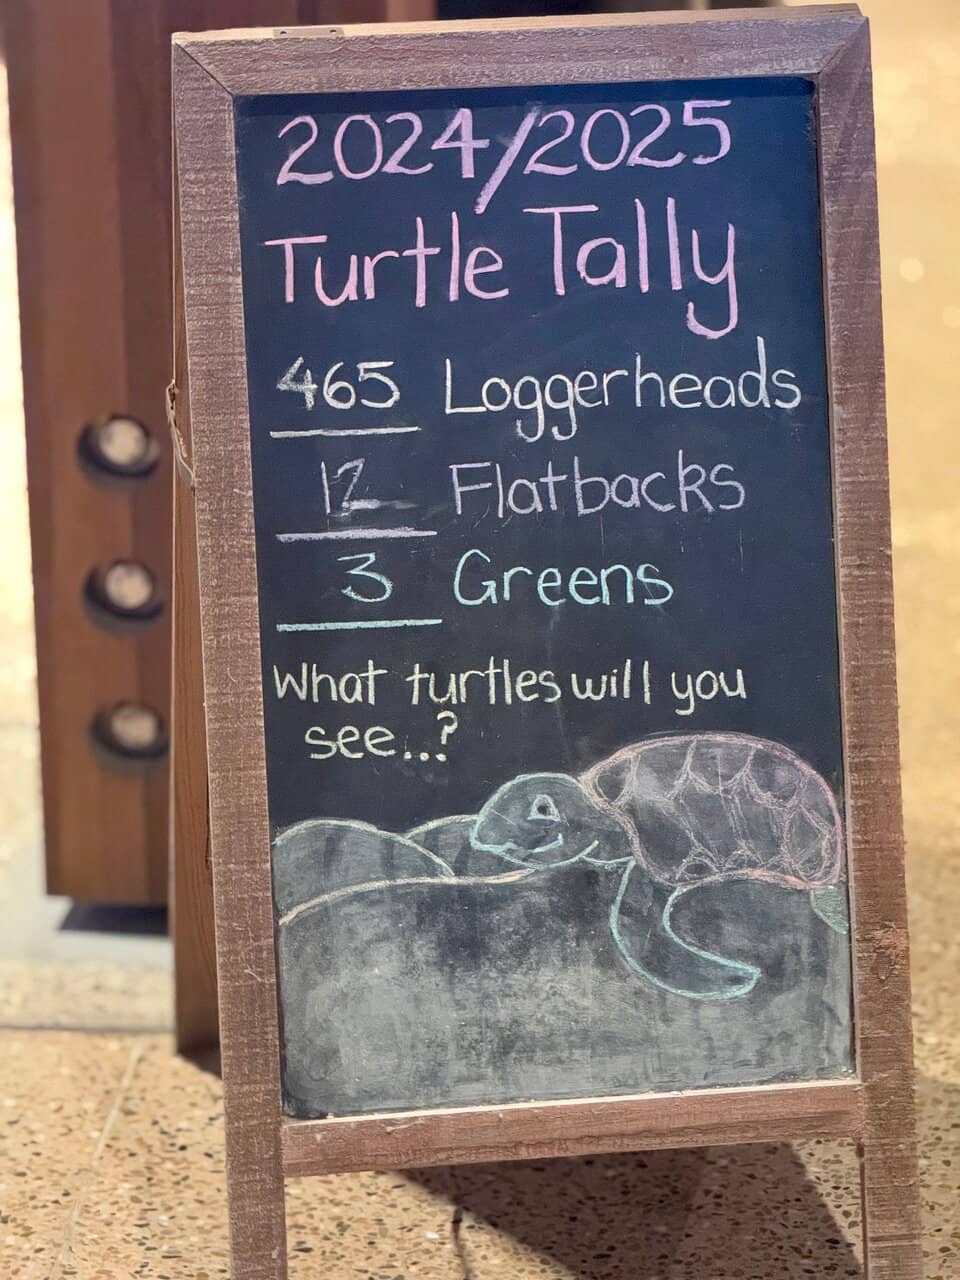 2024/2025
Turtle Tally
465 Loggerheads
12 Flatbacks
3 Greens
What turtles will you
see...?